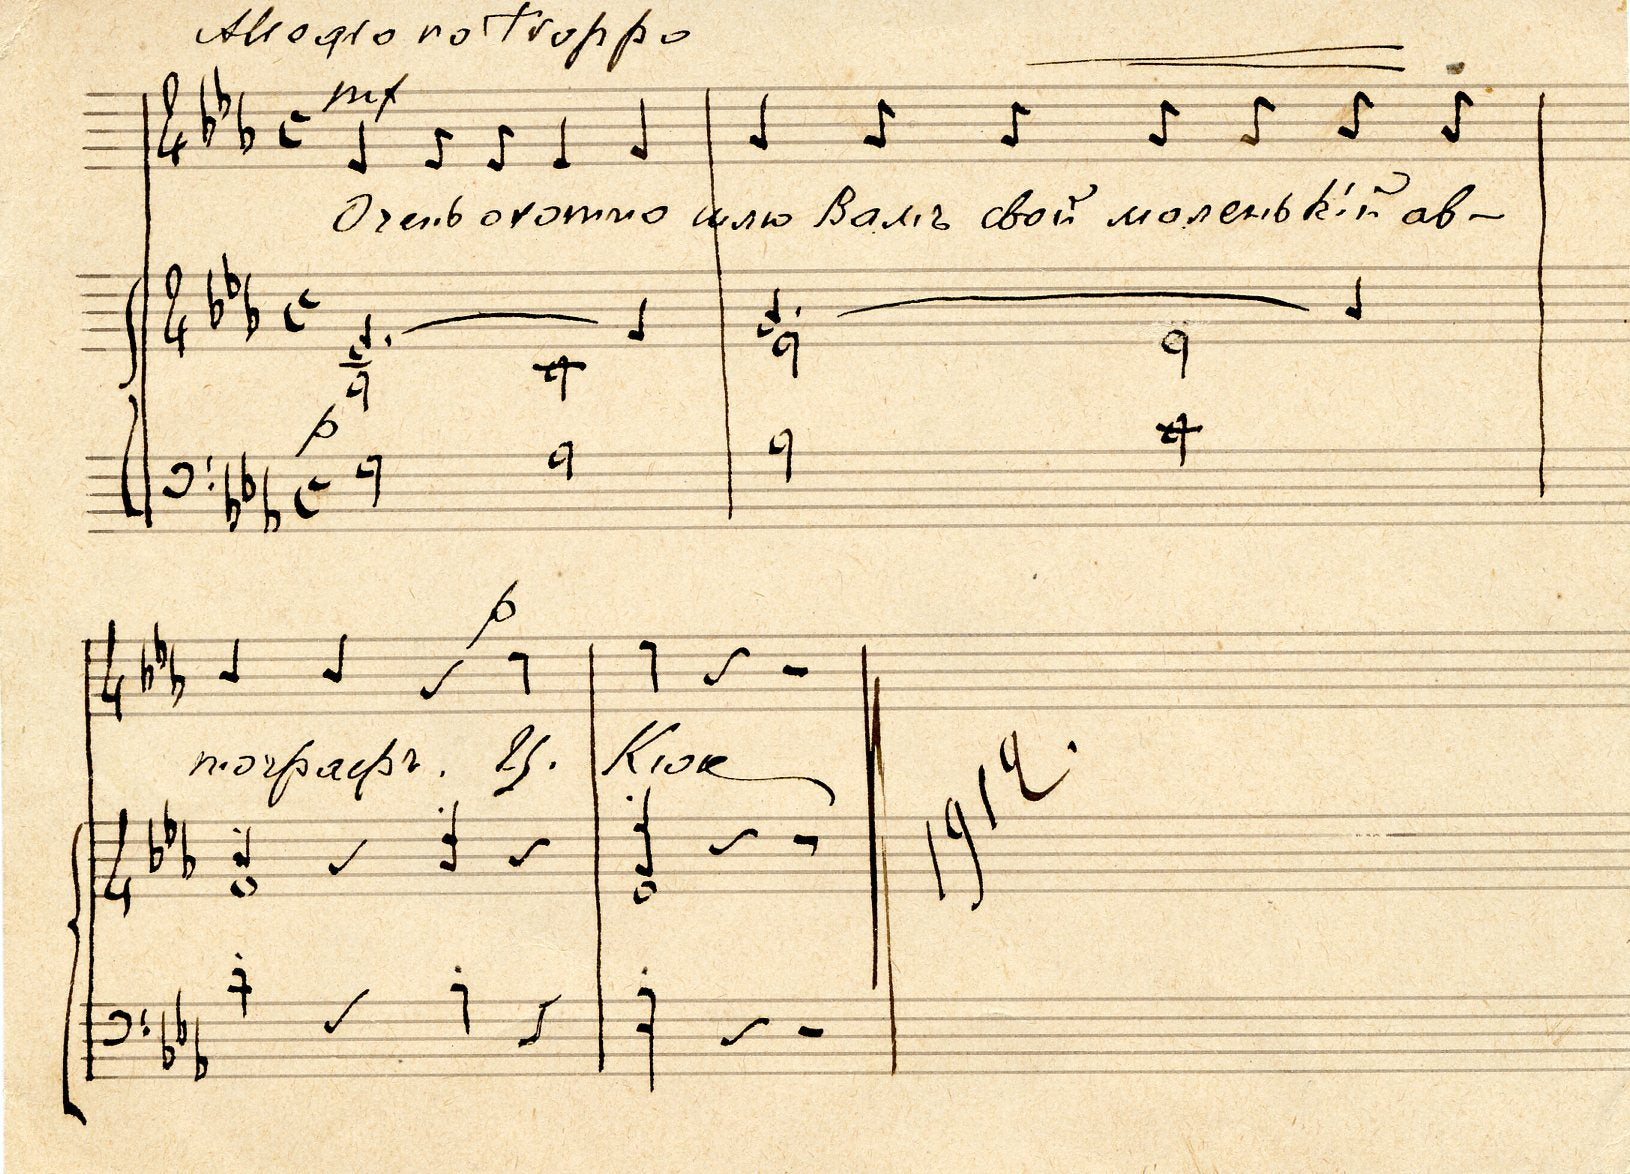 Allegro no troppo
mf
Очень охотно шлю Вамъ свой маленькій ав-
p
p
тографъ. Ц. Кюи
1912.